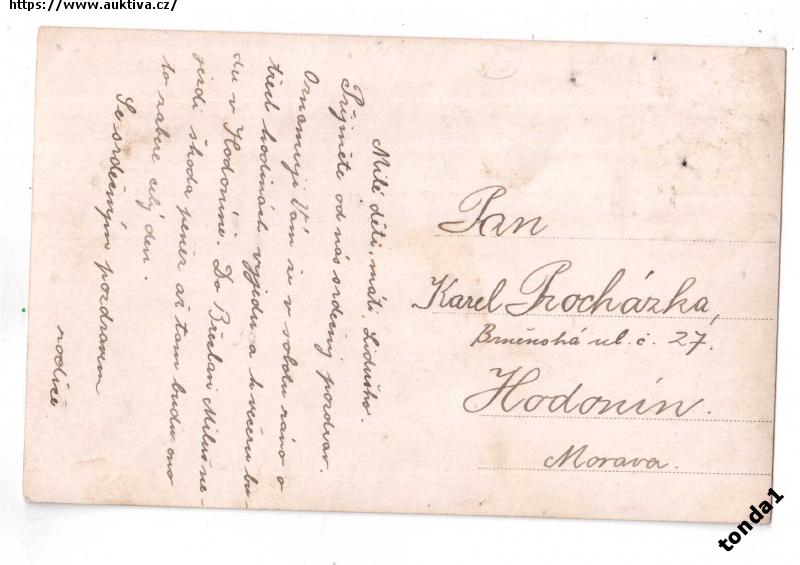 https://www.auktiva.cz/
Milé děti, máti, Liduško.
Přijměte od nás srdečný pozdrav.
Oznamuji Vám že v sobotu ráno o
třech hodinách vyjedu a k večeru bu-
du v Hodoníně. Do Břeclavi Miluš ne-
jezdi škoda peněz až tam budu ono
to zabere celý den.
Se srdečným pozdravem
rodiče
Pan
Karel Procházka,
Brněnská ul. č. 27.
Hodonín.
Morava.
tonda1